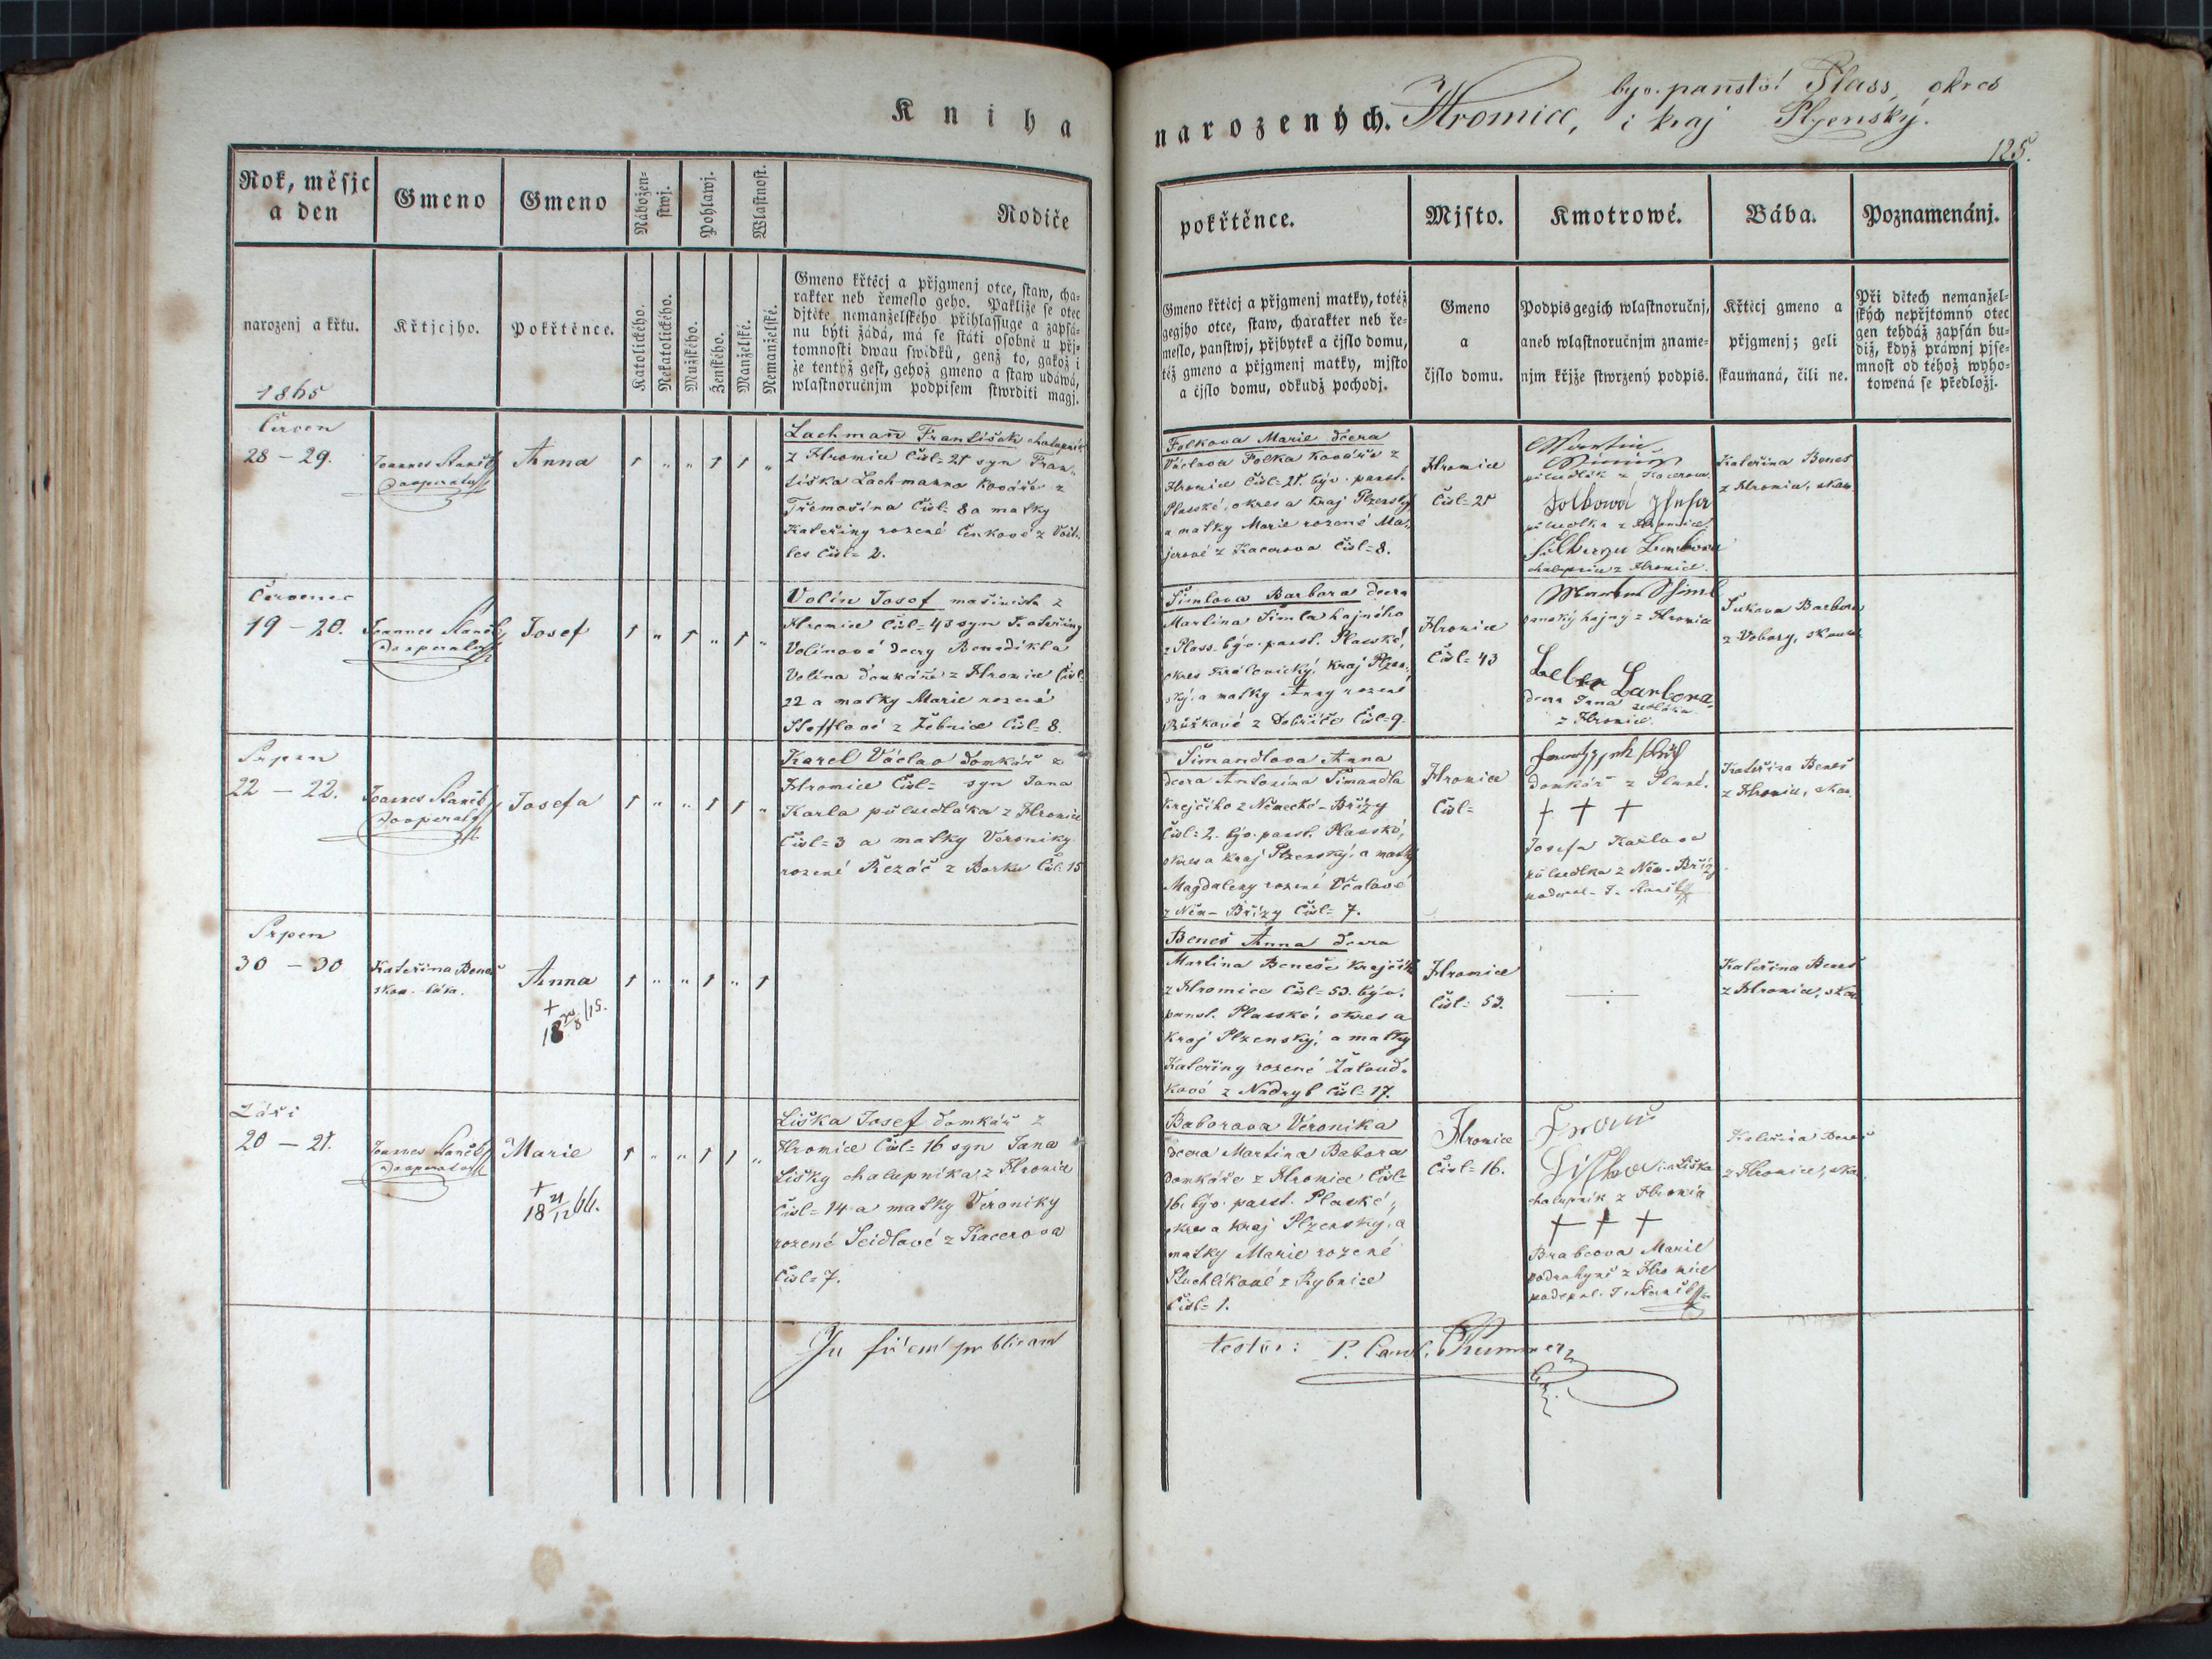 Kniha
narozených. Hromice,
býv. panství Plass, okres
i kraj Plzenský.
125.
Rok, měsjc
a den
Gmeno
Gmeno
Nábožen-
stwj.
Pohlawj.
Wlastnost.
Rodiče
narozenj a křtu.
1865
Křtjcjho.
Pokřtěnce.
Katolického.
Nekatolického.
Mužského.
Ženského.
Manželské.
Nemanželské.
Gmeno křtěcj a přjgmenj otce, staw, cha-
rakter neb řemeslo geho. Pakliže se otec
djtěte nemanželského přihlassuge a zapsá-
nu býti žádá, má se státi osobně u přj-
tomnosti dwau swědků, genž to, gakož i
že tentýž gest, gehož gmeno a staw udáwá,
wlastnoručnjm podpisem stwrditi magj.
pokřtěnce.
Mjsto.
Kmotrowé.
Bába.
Poznamenánj.
Gmeno křtěcj a přjgmenj matky, totéž
gegjho otce, staw, charakter neb ře-
meslo, panstwj, přjbytek a čjslo domu,
též gmeno a přjgmenj matky, mjsto
a čjslo domu, odkudž pochodj.
Gmeno
a
čjslo domu.
Podpis gegich wlastnoručnj,
aneb wlastnoručnjm zname-
njm křjže stwrzený podpis.
Křtěcj gmeno a
přjgmenj; geli
skaumaná, čili ne.
Při dětech nemanžel-
ských nepřjtomný otec
gen tehdáž zapsán bu-
diž, když práwnj pjse-
mnost od téhož wyho-
towená se předložj.
Červen
28 – 29.
Joannes Staněk
Cooperator
Anna
1 „ „ 1 1 „
Lachmann František chalupník
z Hromic Čisl= 21 syn Fran-
tiška Lachmanna kováře z
Třemošína Čisl= 8 a matky
Kateřiny rozené Čenkové z
les Čisl= 2.
Folkova Marie dcera
Václava Folka kováře z
Hromic Čisl= 21. býv. panst.
Plasské, okres a kraj Plzenský
a matky Marie rozené Ma-
jerové z Kacerova Čisl= 8.
Hromice
Čisl= 21
Martin
půlsedlák z Kacerova
půlsedlka z Hromic
chalupnice z Hromic.
Kateřina Beneš
z Hromic, skau.
Červenec
19 – 20.
Joannes Staněk
Cooperator
Josef
1 „ 1 „ 1 „
Volín Josef mašinista z
Hromic Čisl= 43 syn Kateřiny
Volínové dcery Benedikta
Volína domkáře z Hromic Čisl=
22 a matky Marie rozené
Stofflové z Žebnice Čisl= 8.
Šimlova Barbora dcera
Martina Šimla hajného
z Plass býv. panst. Plasské
okres Královický, kraj Plzen-
ský, a matky Anny rozené
Růžkové z Dobříče Čisl= 9.
Hromice
Čisl= 43
panský hajný z Hromic
Barbora
dcera Jana sedláka
z Hromic.
Barbora
z Vobory, skau.
Srpen
22 – 22.
Joannes Staněk
Cooperator
Josefa
1 „ „ 1 1 „
Karel Václav domkář z
Hromic Čisl= syn Jana
Karla půlsedláka z Hromic
Čisl= 3 a matky Veroniky
rozené Řezáč z Borku Čisl= 15
Šimandlova Anna
dcera Antonína Šimandla
krejčího z Německé-Břízy
Čisl= 2. býv. panst. Plasské,
okres a kraj Plzenský, a matky
Magdaleny rozené Včalové
z Něm- Břízy Čisl= 7.
Hromice
Čisl=
domkář z
+ + +
Josefa Karlova
půlsedlka z Něm- Břízy
podepsal J. Staněk
Kateřina Beneš
z Hromic, skau.
Srpen
30 – 30
Kateřina Beneš
skau. bába.
Anna
+
1 „ „ 1 „ 1
Beneš Anna dcera
Martina Beneše krejčího
z Hromice Čisl= 53. býv.
panst. Plasské, okres a
kraj Plzenský, a matky
Kateřiny rozené Žaloud-
kové z Nadryb Čisl= 17.
Hromice
Čisl= 53.
Kateřina Beneš
z Hromic, skau
Září
20 – 21.
Joannes Staněk
Cooperator
Marie
+
18 21/12 66.
1 „ „ 1 1 „
Liška Josef domkář z
Hromice Čisl= 16 syn Jana
Lišky chalupníka z Hromic
Čisl= 14 a matky Veroniky
rozené Seidlové z Kacerova
Čisl= 7.
Baborova Veronika
dcera Martina Babora
domkáře z Hromic Čisl=
16. býv. panst. Plasské,
okres a kraj Plzenský, a
matky Marie rozené
Stuchlíkové z Rybnice
Čisl= 1.
Hromice
Čisl= 16.
Liška
chalupník z Hromic
+ + +
Brabcova Marie
podruhyně z Hromic
podepsal J. Staněk
Kateřina Beneš
z Hromic, skau.
In fidem publicam
testor: P. Carol.